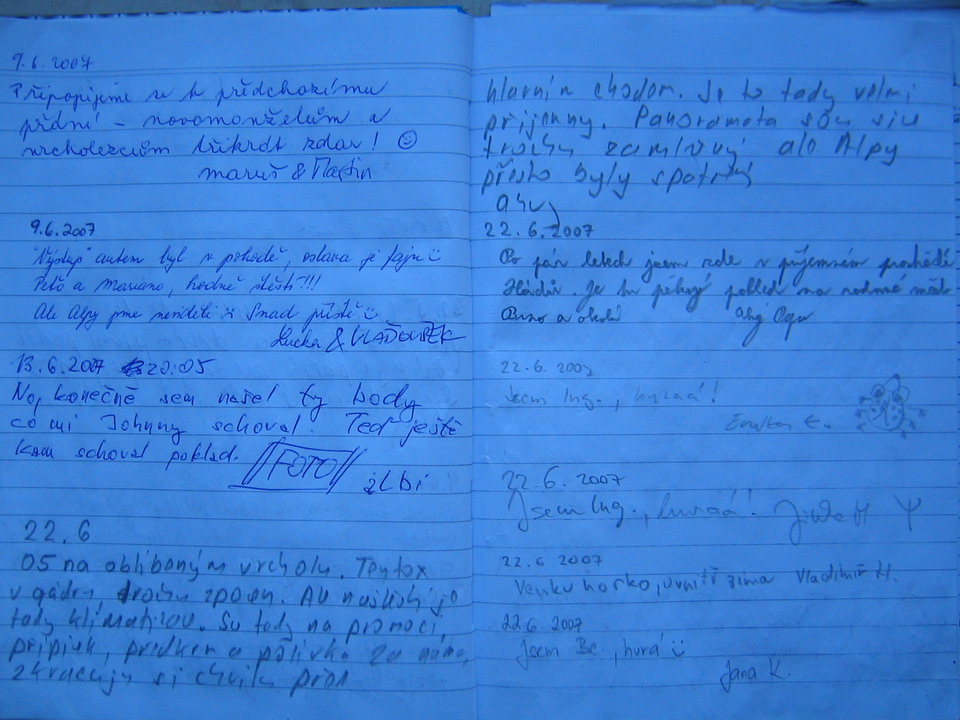 9.6.2007
Připopijeme se k předchozímu
přání - novomanželům a
vrcholezcům třikrát zdar! ☺
Maruš & Martin
9.6.2007
"Výstup" autem byl v pohodě, oslava je fajn
Peťo a Mariano, hodně štěstí!!!
Ale Alpy jsme neviděli :( Snad příště
Lucka & VLAĎOUŠEK
13.6.2007 20:05
No, konečně sem našel ty body
co mi Johnny schoval. Teď ještě
kam schoval poklad.
FOTO
žlbi
22.6
05 na oblíbeným vrcholu. Tentox
v trochu
tady klimatizou. Su tady na promoci,
přípitek, a polívka za náma,
si chvilu před
hlavním chodom. Je to tady velmi
příjemny. Panoramata sou siu
trochu zamlzvný ale Alpy
přesto byly spatřný
22.6.2007
Po pár letech jsem zde v příjemném prostředí
Hádův. Je tu pěkný pohled na rodné měst
Brno a okolí
22.6.2007
Jsem Ing., hurááá!
22.6.2007
Jsem Ing., hurááá!
22.6 2007
Venku horko, uvnitř zima Vladimír H.
22.6 2007
Jsem Bc., hurá
Jana K.